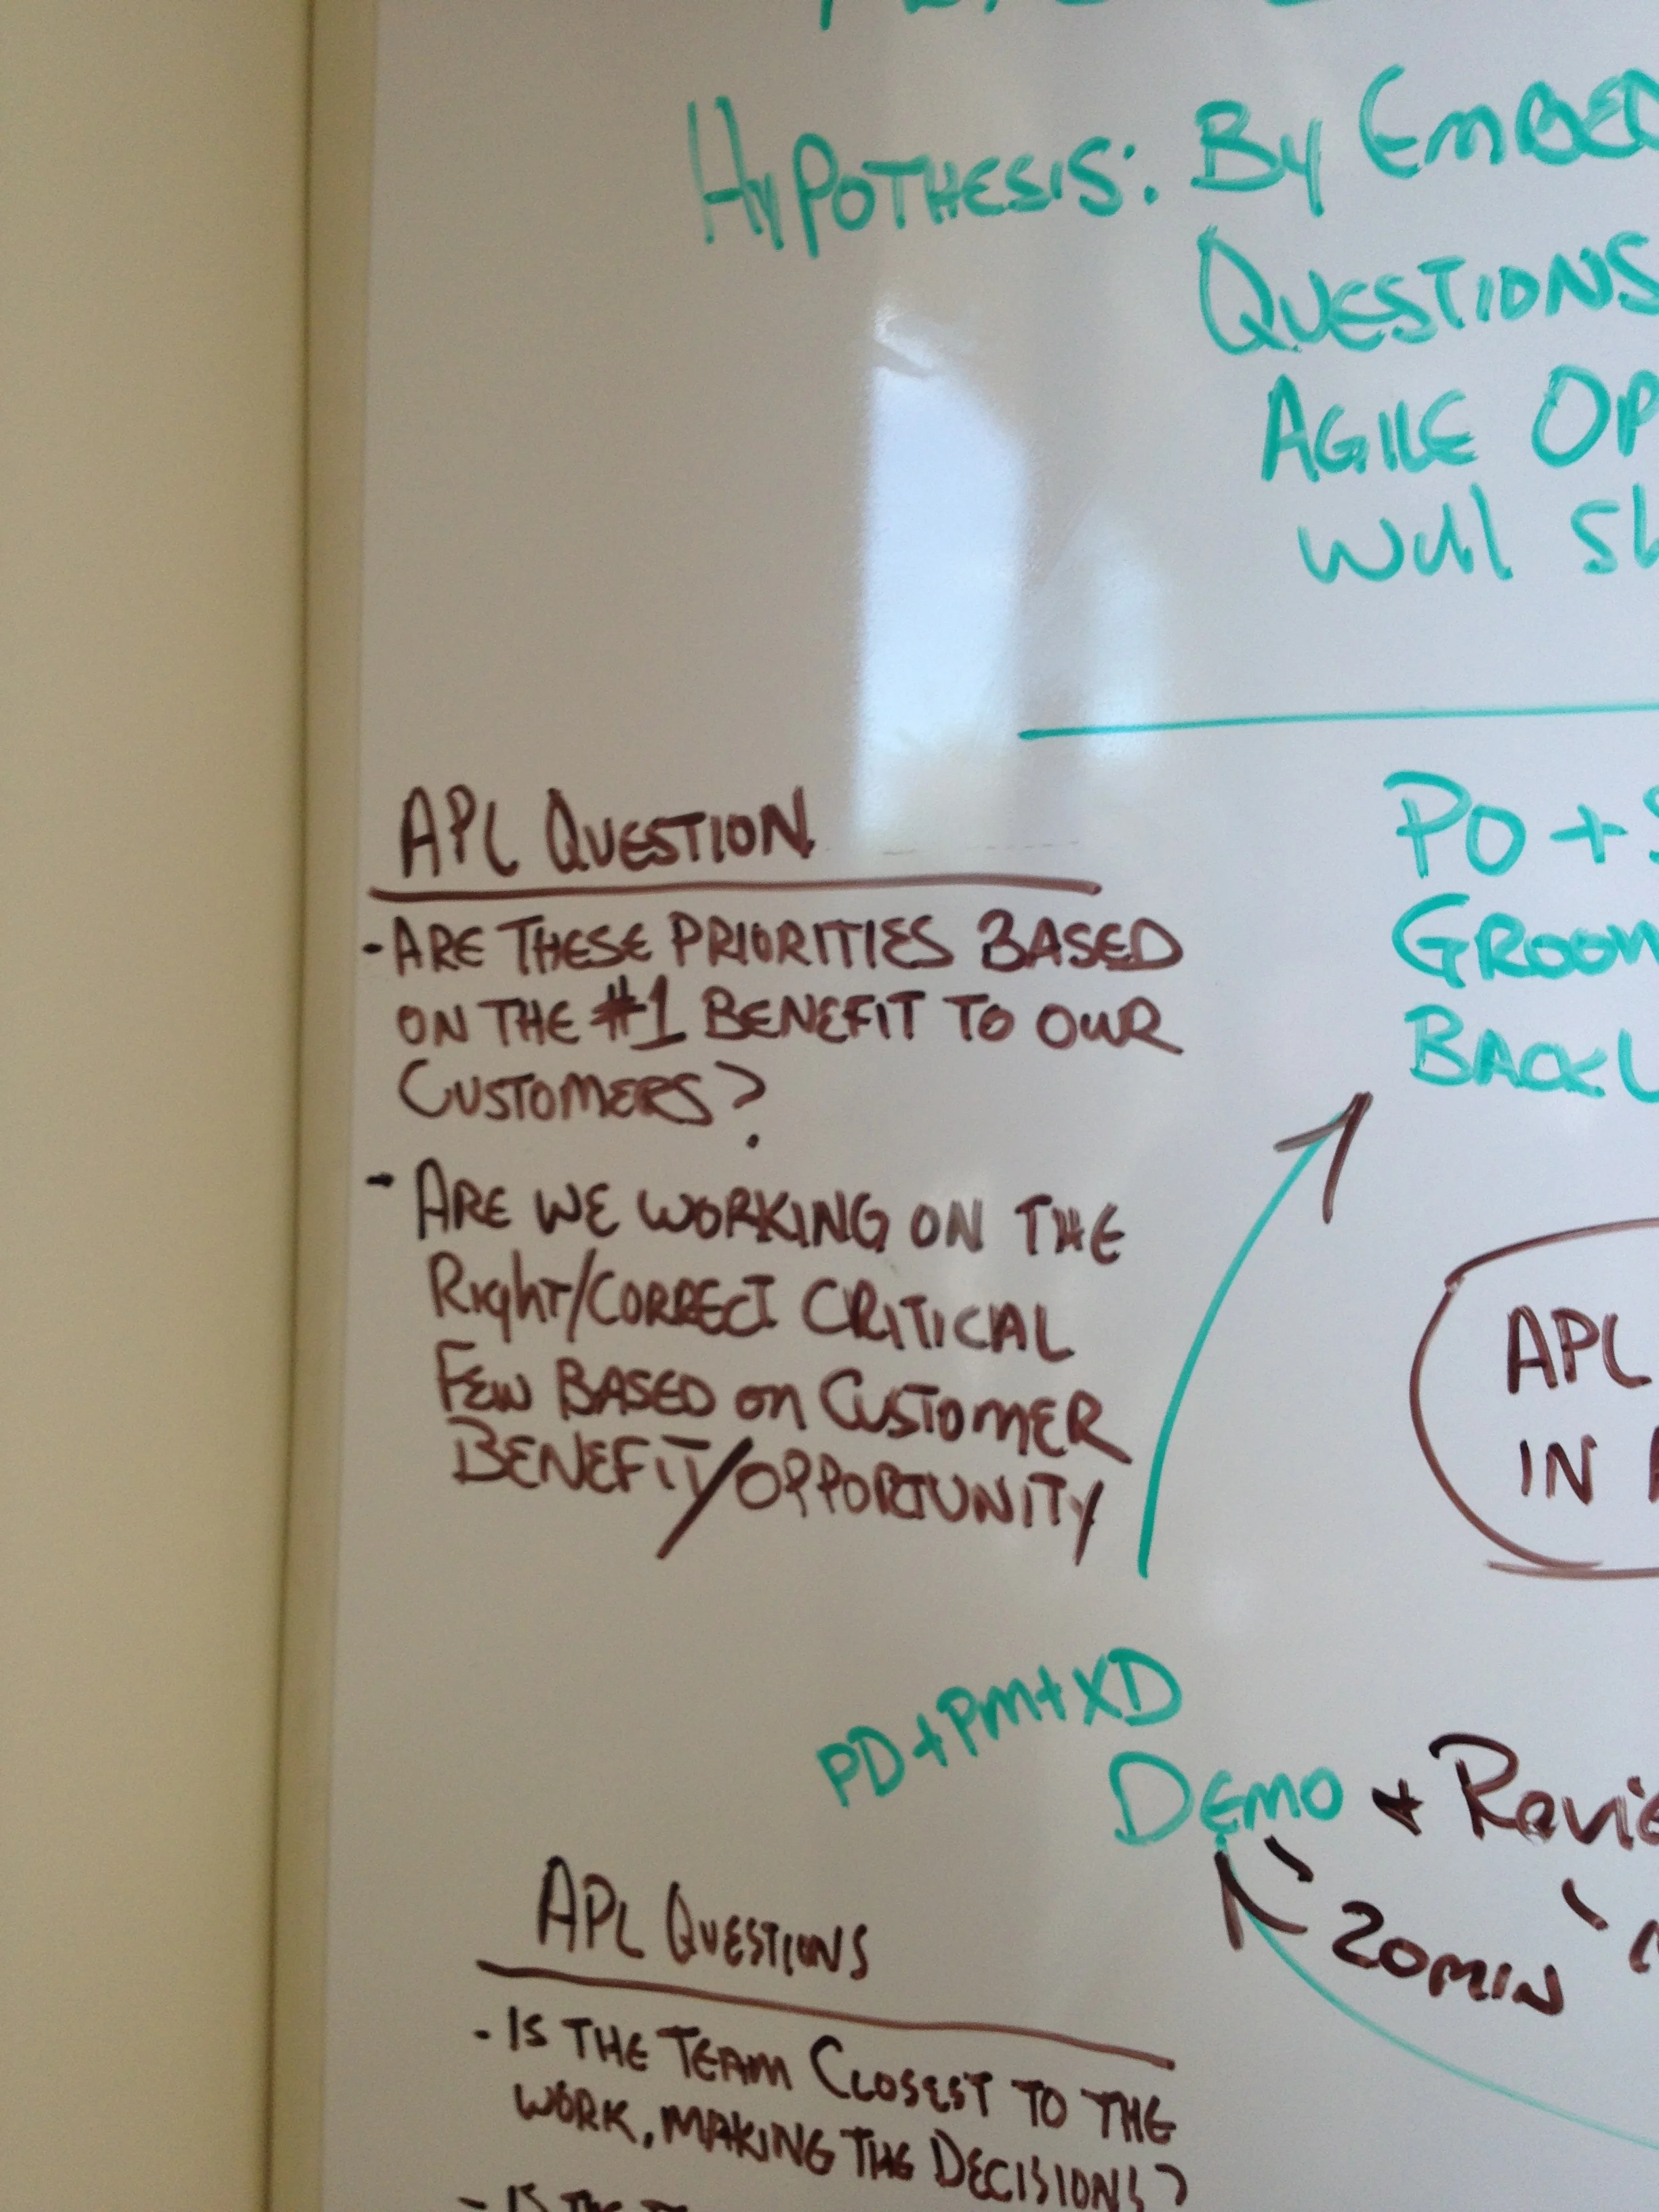 Hypothesis: By Embed
Questions
Agile Op
Will Sh
APL Question
- Are these priorities based
on the #1 benefit to our
Customers?
- Are we working on the
Right/Correct critical
Few based on Customer
Benefit/opportunity
PO + S
Groom
Backl
APL
in
PD+PM+XD
Demo + Revie
20min
APL Questions
- Is the Team Closest to the
work, making the Decisions?
- Is the